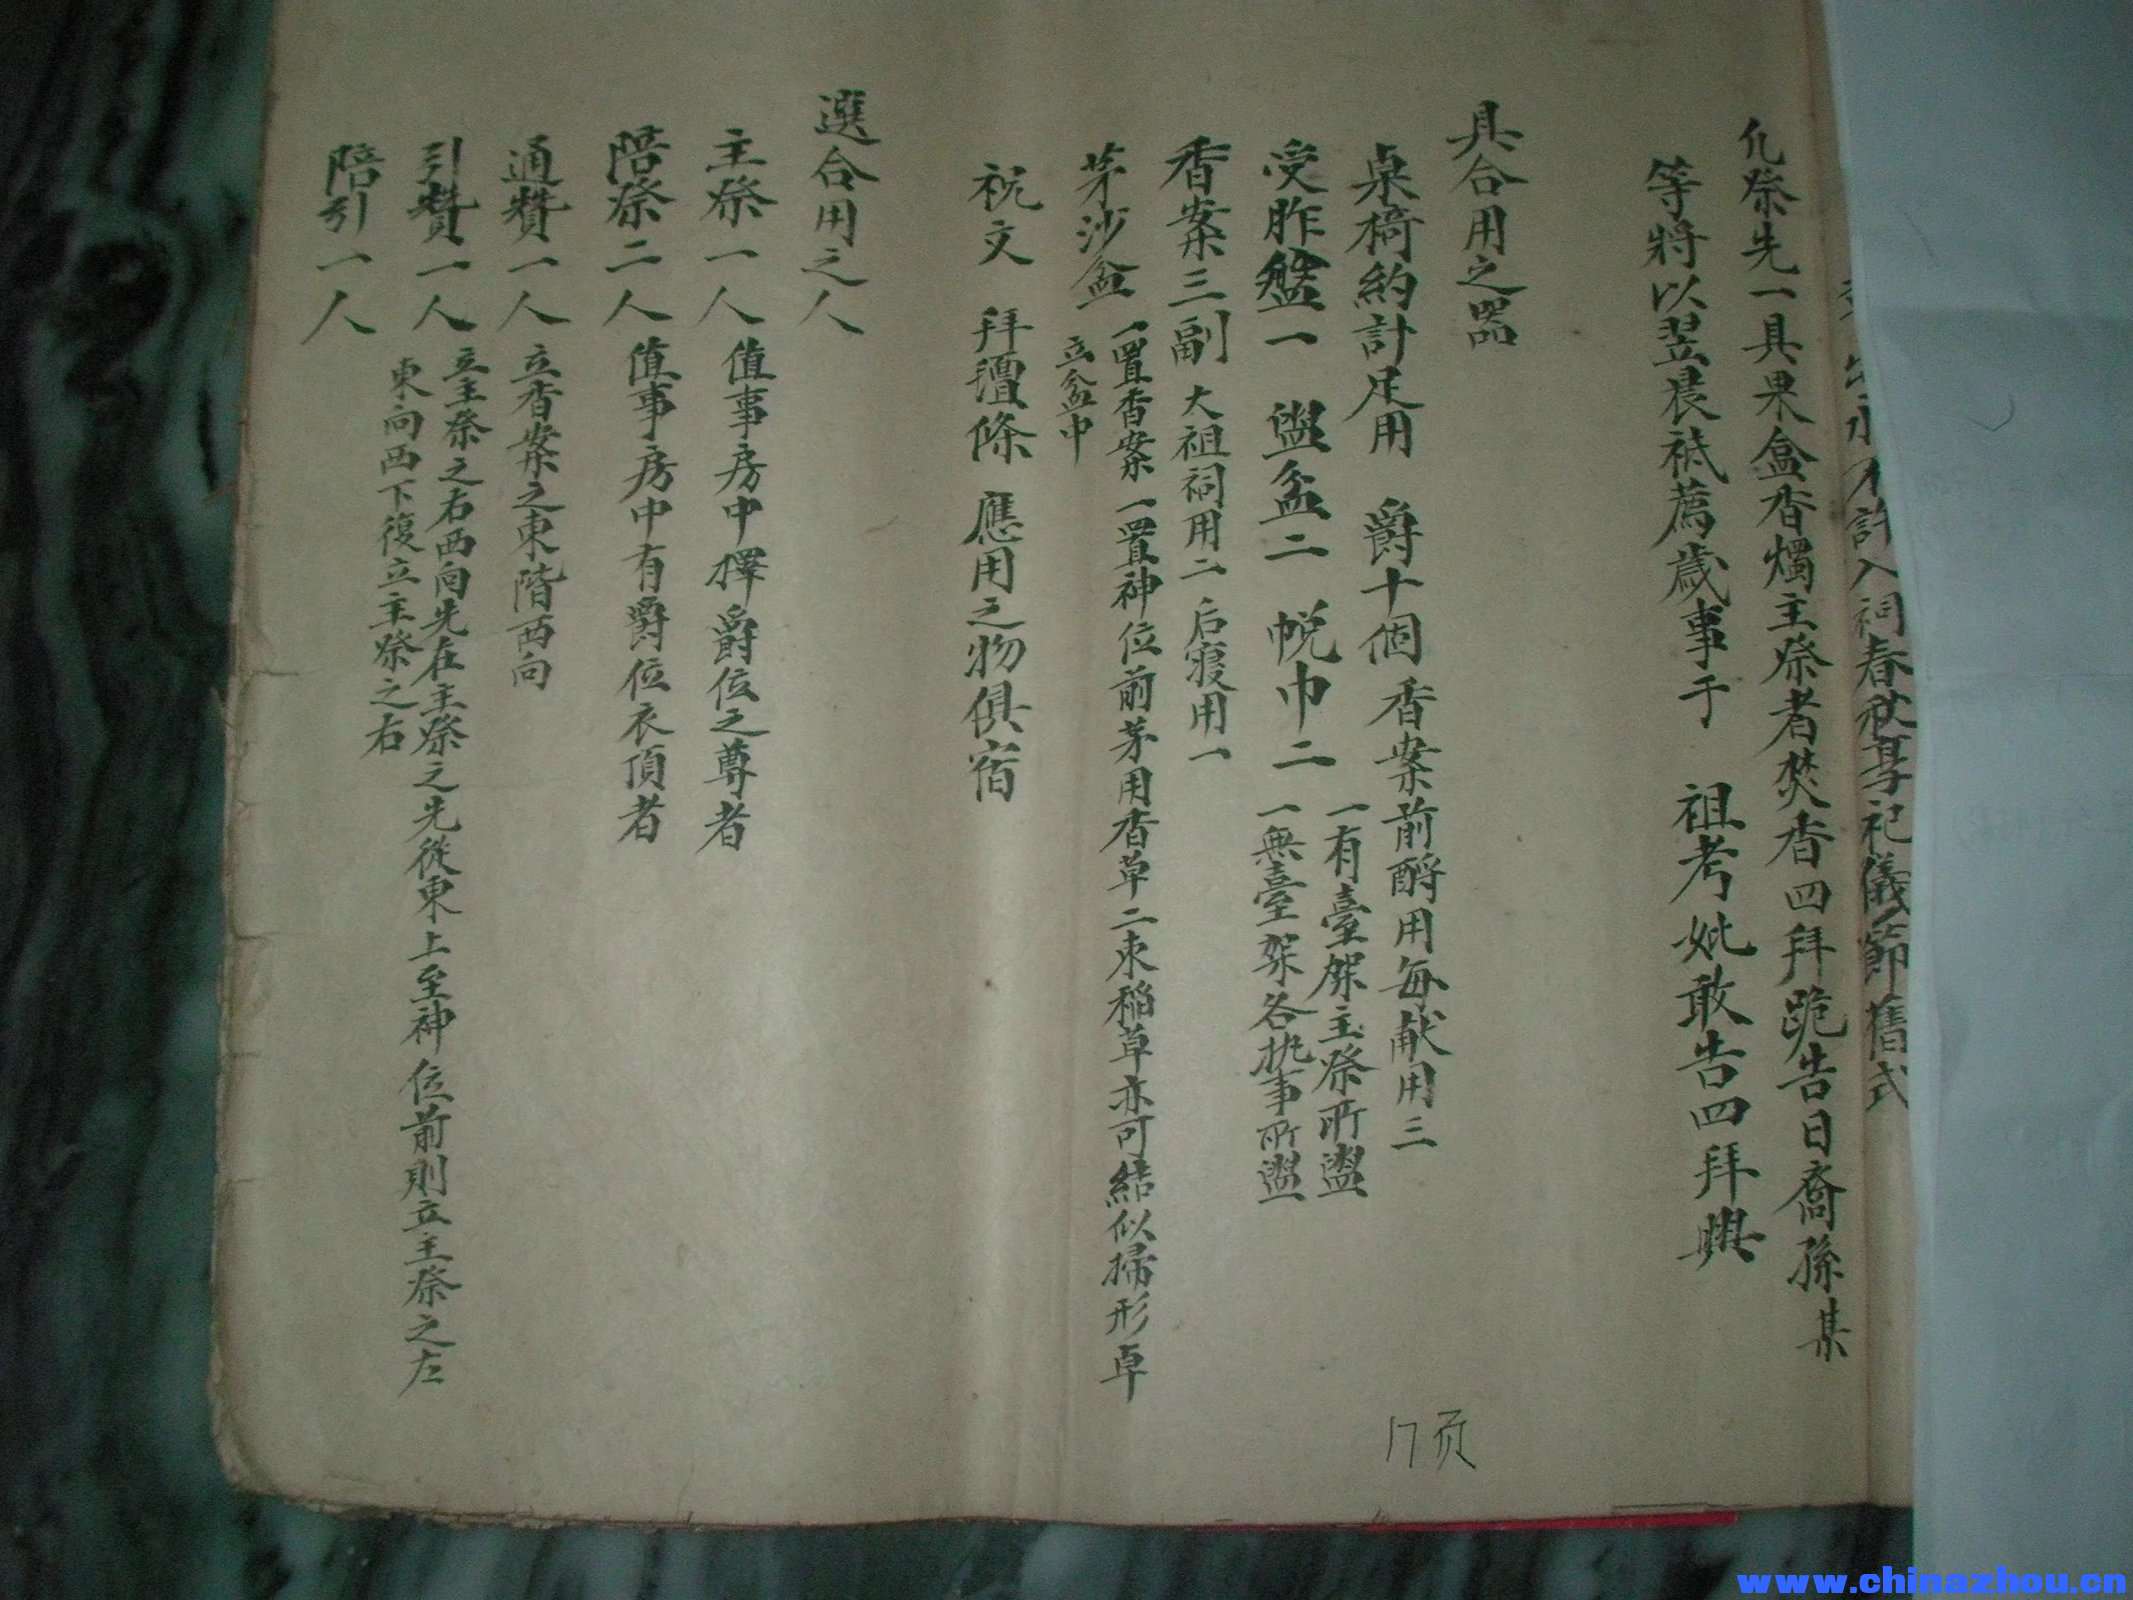 不許入祠春秋享祀儀節舊式
凡祭先一具果盒香燭主祭者焚香四拜跪告曰裔孫某
等將以翌晨祗薦歲事于 祖考妣敢告四拜興
具合用之器
桌椅約計足用 爵十個 香案前酹用每献用三
受胙盤一 盥盆二 帨巾二 一有臺架主祭所盥
一無臺架各执事所盥
香案三副 大祖祠用二后寢用一
茅沙盆 一置香案一置神位前茅用香草二束稲草亦可結似掃形卓
立盆中
祝文 拜 條 應用之物俱宿
選合用之人
主祭一人 值事房中擇爵位之尊者
陪祭二人 值事房中有爵位衣頂者
通贊一人 立香案之東階西向
引贊一人 立主祭之右西向先在主祭之先從東上至神位前則立主祭之左
東向西下復立主祭之右
陪引一人
17页
www.chinazhou.cn